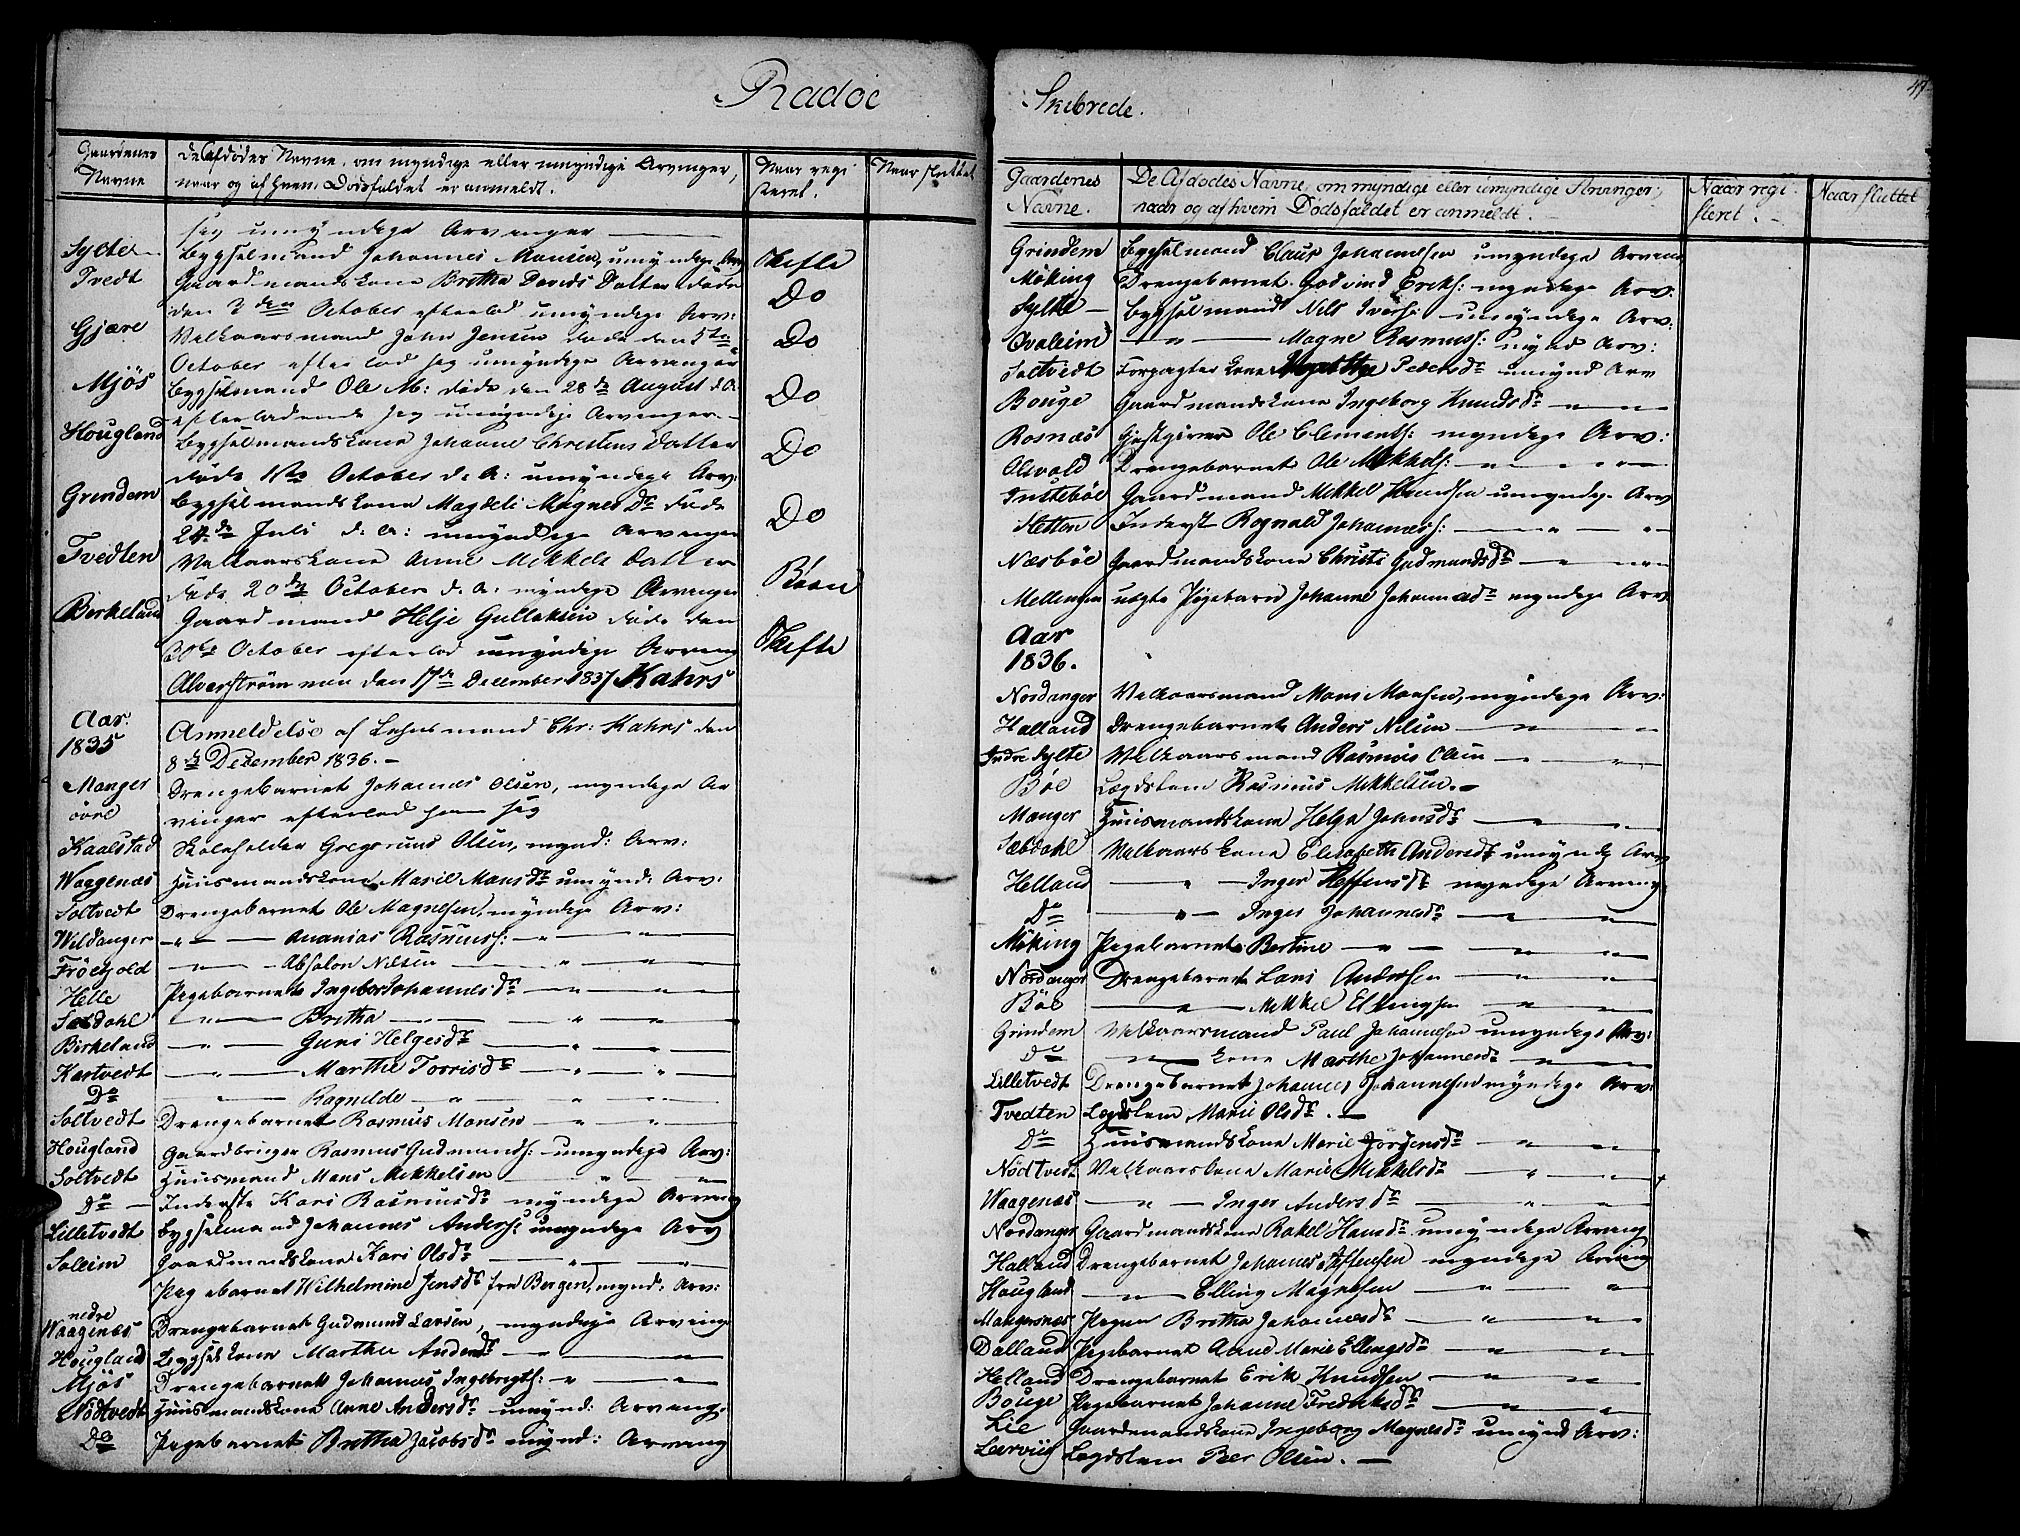 Radöe
Gaardenes Navne
De Afdødes Navne, om myndige eller umyndige Arvinger, naar og af hvem Dødsfaldet er anmeldt.
Naar registeret.
Naar sluttet
sig umyndige Arvinger
Sylte Bygselmand Johannes Monsen, umyndige Arv Skifte
Tvedt Gaardmandskone Britha Davids Datter døde
den 2den October efterlod umyndige Arv: Do
Gjære Velkaarsmand John Jensen døde den 5te Do
October efterlod sig umyndige Arvinger
Mjös Bygselmand Ole M: døde den 28de August d. A. Do
efterladende sig umyndige Arvinger.
Hougland Bygselmandskone Johanne Christens Datter Do
døde October d. A: umyndige Arv:
Grindem Bygselmandskone Magdeli Magnes Dr døde
24de Juli d. A: umyndige Arvinger Do
Tvedten Velkaarskone Anne Mikkels Datter
døde 20de October d. A: myndige Arvinger Böen
Birkeland Gaardmand Helje Gullaksen døde den
30te October efterlod umyndige Arving Skifte
Alverstrøm den 17de December 1837 Kahrs
Aar 1835 Anmeldelse af Lehnsmand Chr: Kahrs den
8de Dezember 1836. –
Manger Drengebarnet Johannes Olsen, myndige Ar
övre vinger efterlod han sig
Kaalstad Skoleholder Gregorius Olsen, mynd: Arv:
Waagenæs Huusmandskone Marie Mansdr umynd: Arv:
Soltvedt Drengebarnet Ole Magnesen, myndige Arv:
Wildanger — " — Ananias Rasmuss: — " —
Fröeyold — " — Absalon Nilsen — " —
Helle Pigebarnet Ingebor Johannesdr — " —
Sæbdahl — " — Britha — " —
Birkeland — " — Guri Helgesdr — " —
Kartvedt — " — Marthe Torrisdr — " —
Do — " — Ragnilde — " —
Soltvedt Drengebarnet Rasmus Monsen — " —
Hougland Gaardbruger Rasmus Gudmunds: umyndige Arv:
Soltvedt Huusmand Mons Mikkelsen — " —
Do Inderste Kari Rasmusdr myndige Arving
Lilletvedt Bygselmand Johannes Anders: umyndige Arv
Soleim Gaardmandskone Kari Olsdr — " —
Pigebarnet Wilhelmine Jensdr fra Bergen, mynd: Arv:
nedre
Waagenæs Drengebarnet Gudmund Larsen, myndige Arving
Hougland Bygselkone Marthe Andersdr — " —
Mjös Drengebarnet Johannes Ingebrigts: — " —
Nödtvedt Huusmandskone Anne Andersdr umynd: Arving.
Do Pigebarnet Britha Jacobsdr mynd: Arving
Skibrede. 47
Gaardenes Navne.
De Afdødes Navne, om myndige eller umyndige Arvinger, naar og af hvem Dødsfaldet er anmeldt.
Naar registeret.
Naar sluttet
Grindem Bygselmand Claus Johannesen umyndige Arving
Möking Drengebarnet Godvind Eriks: myndige Arv:
Sylte – Bygselmand Nils Ivers: umyndige Arv:
Qvaleim — " — Magne Rasmuss: mynd Arv:
Soltvedt Forpagterkone Pedersdr umynd Arv
Bouge Gaardmandskone Ingeborg Knudsdr — " —
Rosnæs Gjestgiver Ole Clements: myndige Arv:
Olsvold Drengebarnet Ole Mikkels: — " —
Gaardmand Mikkel Knudsen umyndige Arv
Sletten Inderst Rognald Johanness: — " —
Næsböe Gaardmandskone Christi Gudmundsdr — " —
Mellingen uægte Pigebarn Johanne Johannesdr myndige Arv
Aar
1836.
Nordanger Velkaarsmand Mons Monsen, myndige Arv:
Halland Drengebarnet Anders Nilsen — " —
Indre Sylte Velkaarsmand Rasmus Olsen — " —
Böe Lægdslem Rasmus Mikkelsen. –
Manger Huusmandskone Helga Johnsdr — " —
Sæbdahl Velkaarskone Elisabeth Andersdr umyndg Arv
Helland — " — Inger Steffensdr myndige Arving
Do — " — Inger Johannesdr — " —
Möking Pigebarnet Bertine — " —
Nordanger Drengebarnet Lars Andersen — " —
Böe — " — Mikkel Ellingsen — " —
Grindem Velkaarsmand Paul Johannesen umyndige Arv:
Do — " — kone Marthe Johannesdr — " —
Lilletvedt Drengebarnet Johannes Johannesen myndige Arv:
Tvedten Lægdslem Marie Olsdr. –
Do Huusmandskone Marie Jörgensdr — " —
Nödtvedt Velkaarskone Marie Mikkelsdr — " —
Waagenæs — " — Inger Andersdr — " —
Nordanger Gaardmandskone Rakel Hansdr umyndige Arving
Halland Drengebarnet Johannes Steffensen myndige Arving
Hougland — " — Elling Magnesen — " —
Mangersnæs Pigen Britha Johannesdr — " —
Dalland Pigebarnet Anne Marie Ellingsdr — " —
Helland Drengebarnet Erik Knudsen — " —
Bouge Pigebarnet Johanne Fredriksdr — " —
Lie Gaardmandskone Ingeborg Magnesdr umynd Arv:
Lægdslem Peer Olsen. –